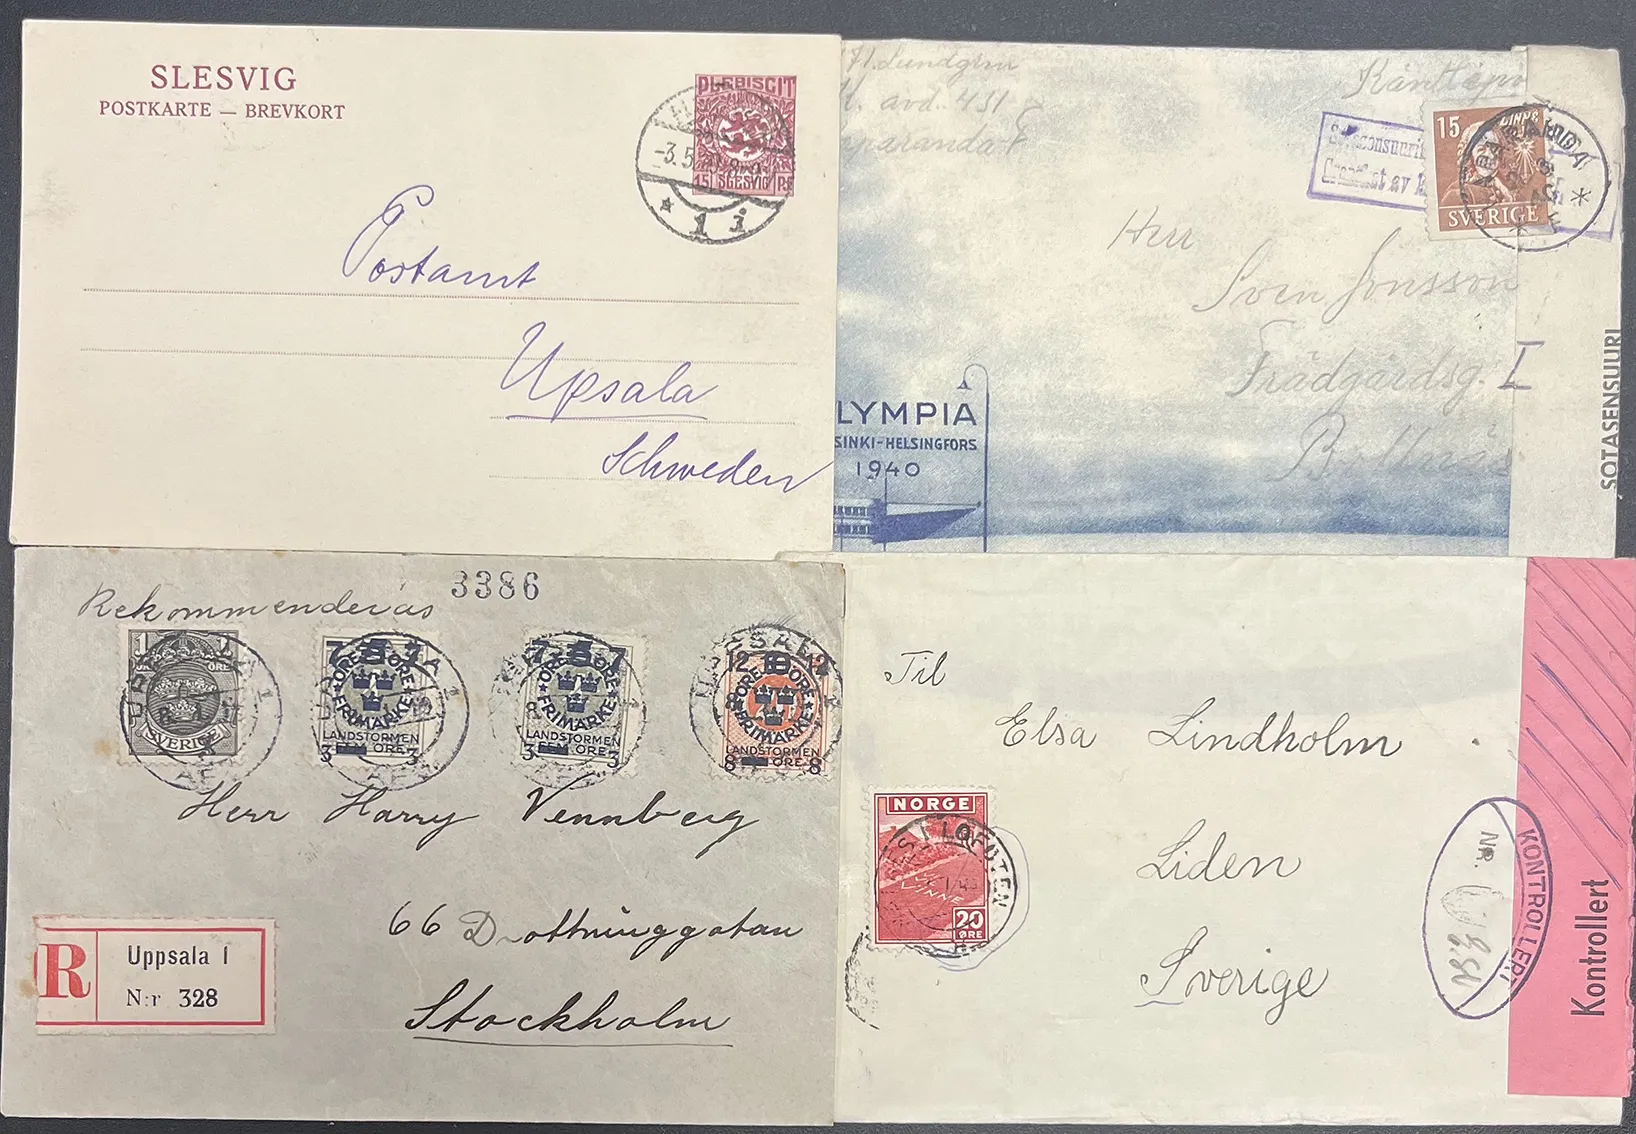 SLESVIG
POSTKARTE — BREVKORT
PLEBISCIT
15 SLESVIG
-3.5.
* 1 i
Postamt
Upsala
Schweden
Lundgren
avd. 4S1
15
SVERIGE
Herr
Sven Jonsson
Trädgårdsg.
I
LYMPIA
SINKI-HELSINGFORS
1940
SOTASENSUURI
Rekommenderas
3386
1 ÖRE
SVERIGE
7 7
FRIMÄRKE
LANDSTORMEN
3 FEM ÖRE 3
7 7
FRIMÄRKE
LANDSTORMEN
3 FEM ÖRE 3
12 12
FRIMÄRKE
LANDSTORMEN
8 ÖRE 8
UPSALA 1
Herr Harry Vennberg
66 Drottninggatan
Stockholm
R
Uppsala 1
N:r 328
Til
Elsa Lindholm
Liden
Sverige
NORGE
VI VINNE
20
ØRE
LOFOTEN
KONTROLLERT
NR.
Kontrollert